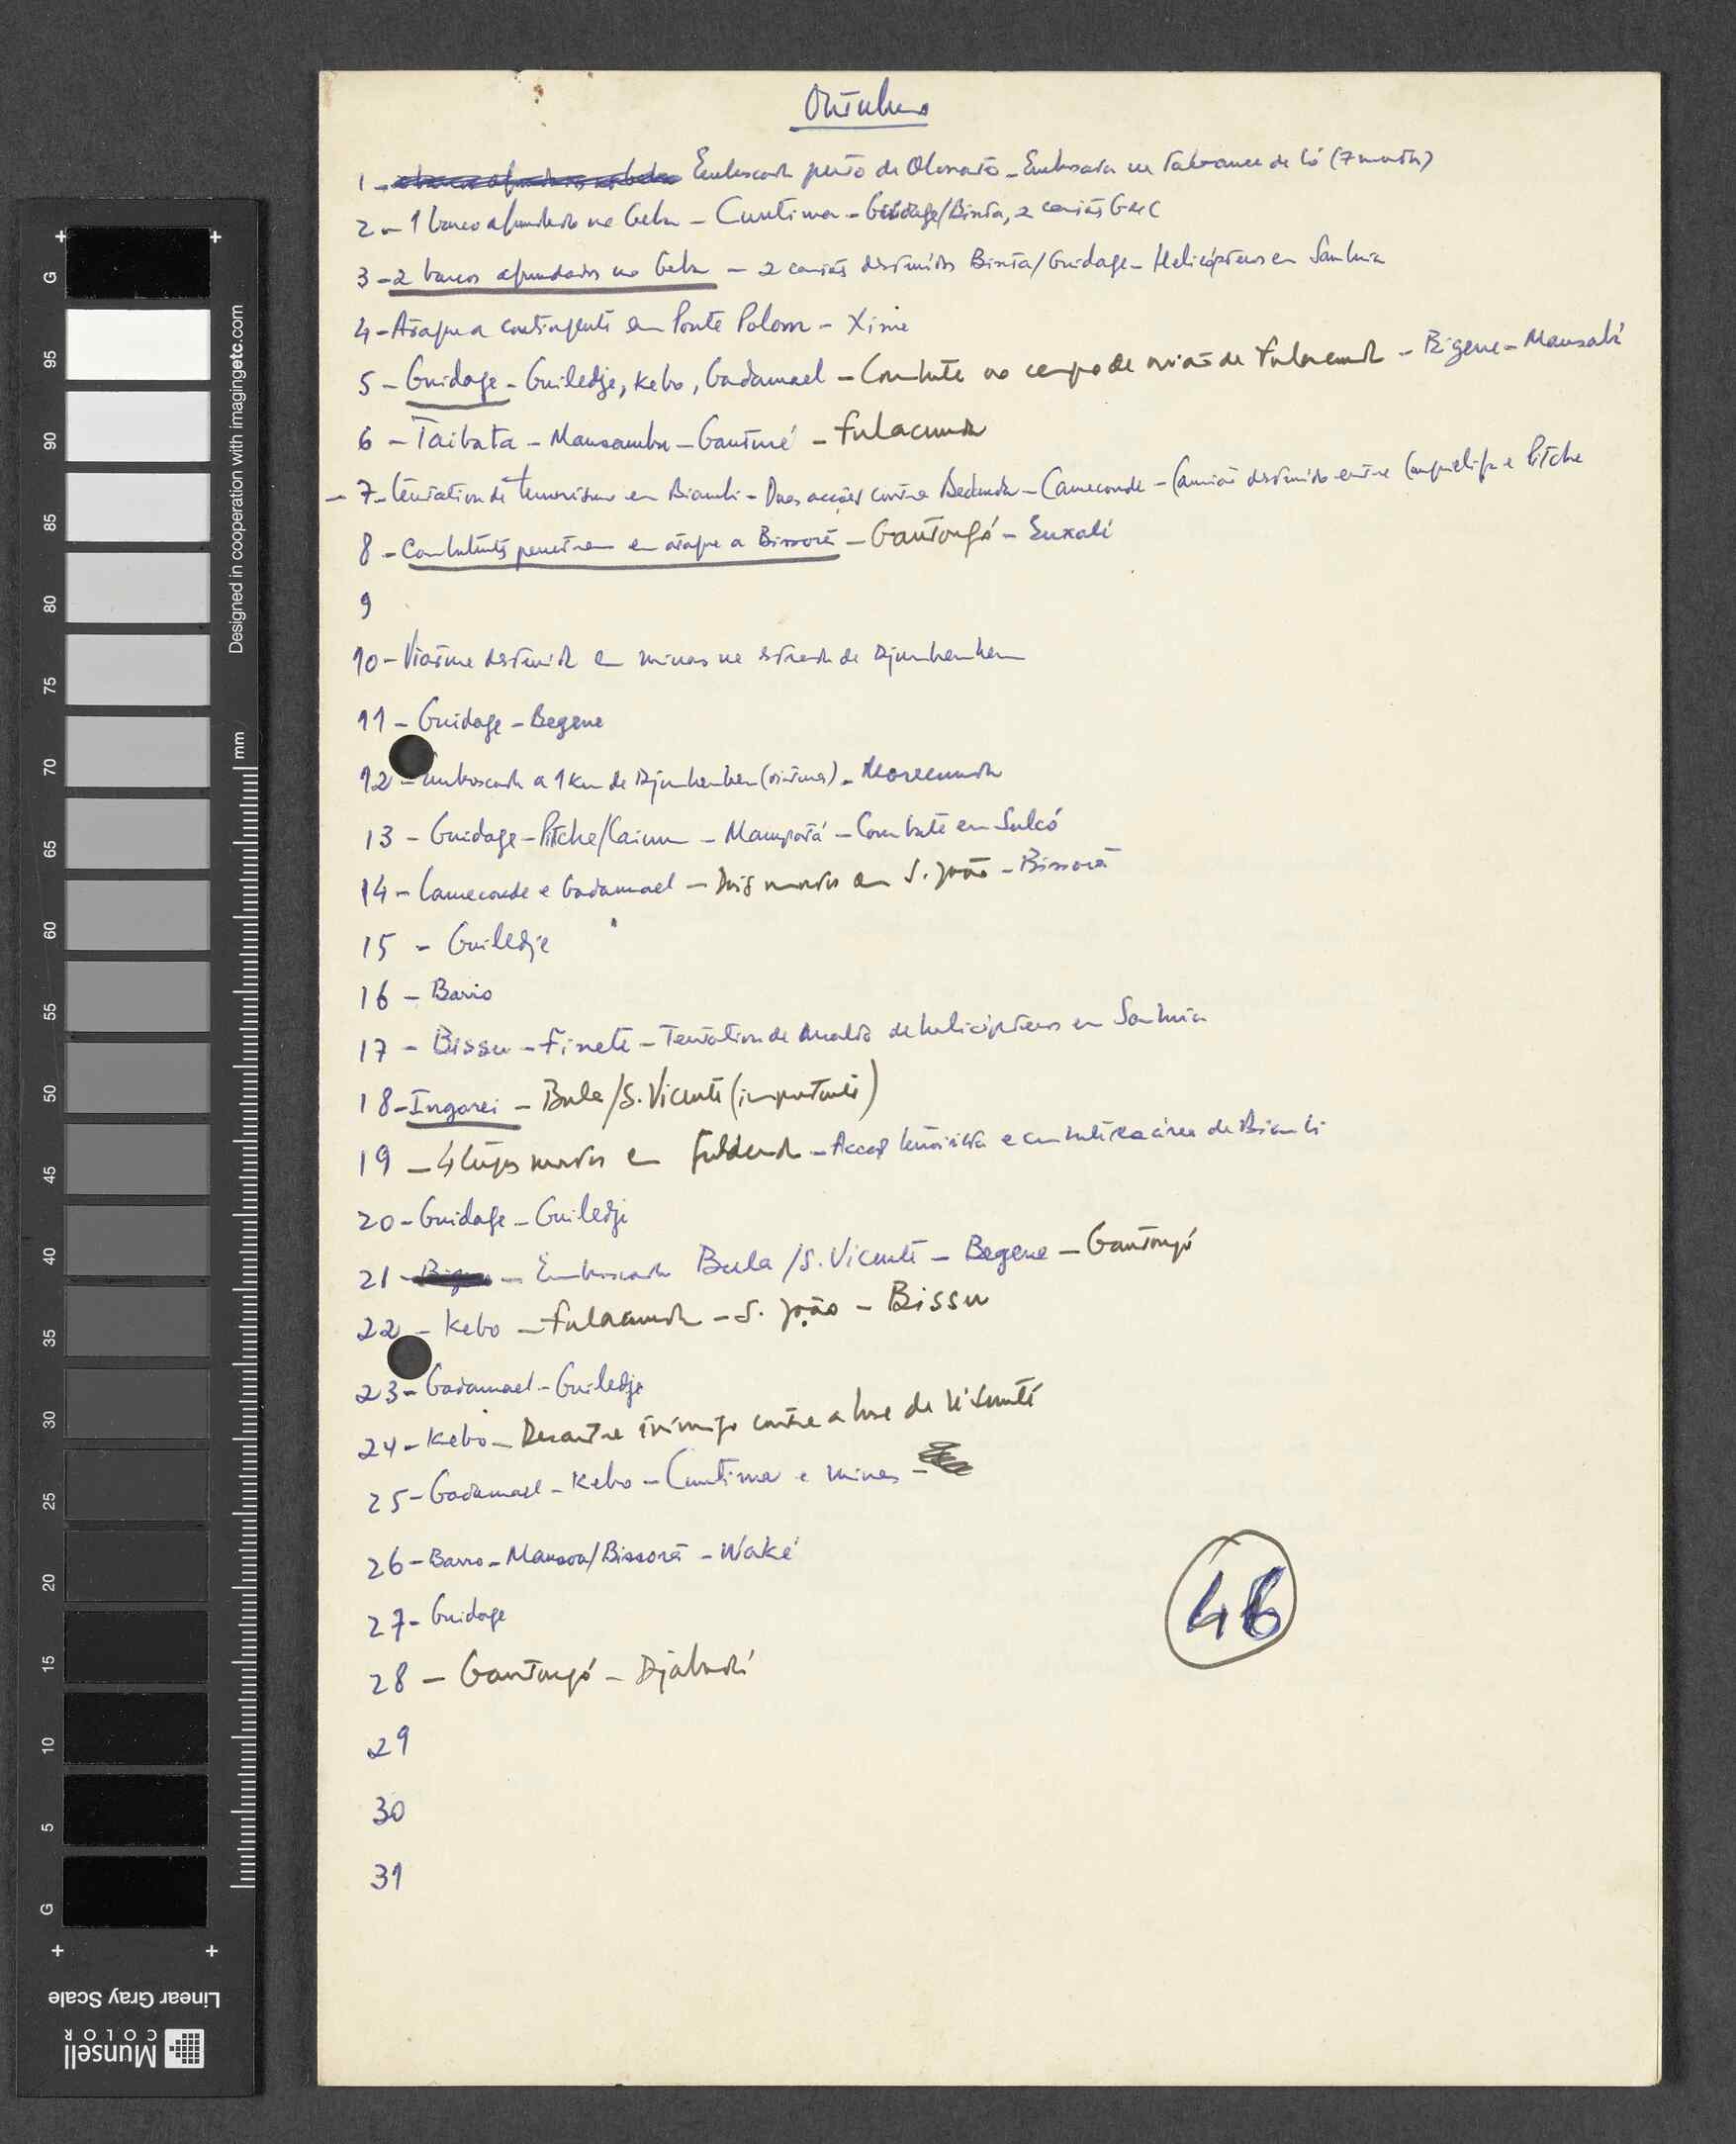 Outubro
1 - Emboscada perto de Olossato - Emboscada na Tabanca de Có (7 mortos)
2 - 1 barco afundado no Geba - Cuntima - Guidage/Binta, 2 camiões GMC
3 - 2 barcos afundados no Geba - 2 camiões destruídos Binta/Guidage - Helicópteros em Sambuia
4 - Ataque a contingente em Ponte - Xime
5 - Guidage - Guiledje, Kebo, Gadamael - Combate no campo de aviação de Fulacunda - Bigene - Mansabá
6 - Taibata - Mansambo - Ganturé - Fulacunda
- 7 - tentation de terrorismo em Biambi - Duas acções contra Bedanda - Cameconde - Camião destruído entre Canquelifa e Pitche
8 - Combatentes penetram em ataque a Bissorã - Gantongó - Enxalé
9
10 - Viatura destruída em minas na estrada de Djumbembem
11 - Guidage - Begene
12 - Emboscada a 1 km de Djumbembem (viaturas) -
13 - Guidage - Pitche/Caium - Mampatá - Combate em Sulcó
14 - Cameconde e Gadamael - Dois mortos em S. João - Bissorã
15 - Guiledje
16 - Barro
17 - Bissu - Finete - Tentation de assalto de helicópteros em Sambuia
18 - Ingorei - Bula/S. Vicente (importante)
19 - 4 tugas mortos em Fulacunda - Acção área de Biambi
20 - Guidage - Guiledje
21 - - Emboscada Bula/S. Vicente - Begene - Gantongó
22 - Kebo - Fulacunda - S. João - Bissu
23 - Gadamael - Guiledje
24 - Kebo - inimigo contra a base de
25 - Gadamael - Kebo - Cuntima e minas -
26 - Barro - Mansoa/Bissorã - Waké
27 - Guidage
28 - Gantongó - Djabadá
29
30
31
46
G 95 90 85 80 75 70 65 60 55 50 45 40 35 30 25 20 15 10 5 G
mm
Designed in cooperation with imagingetc.com
Linear Gray Scale
Munsell
COLOR